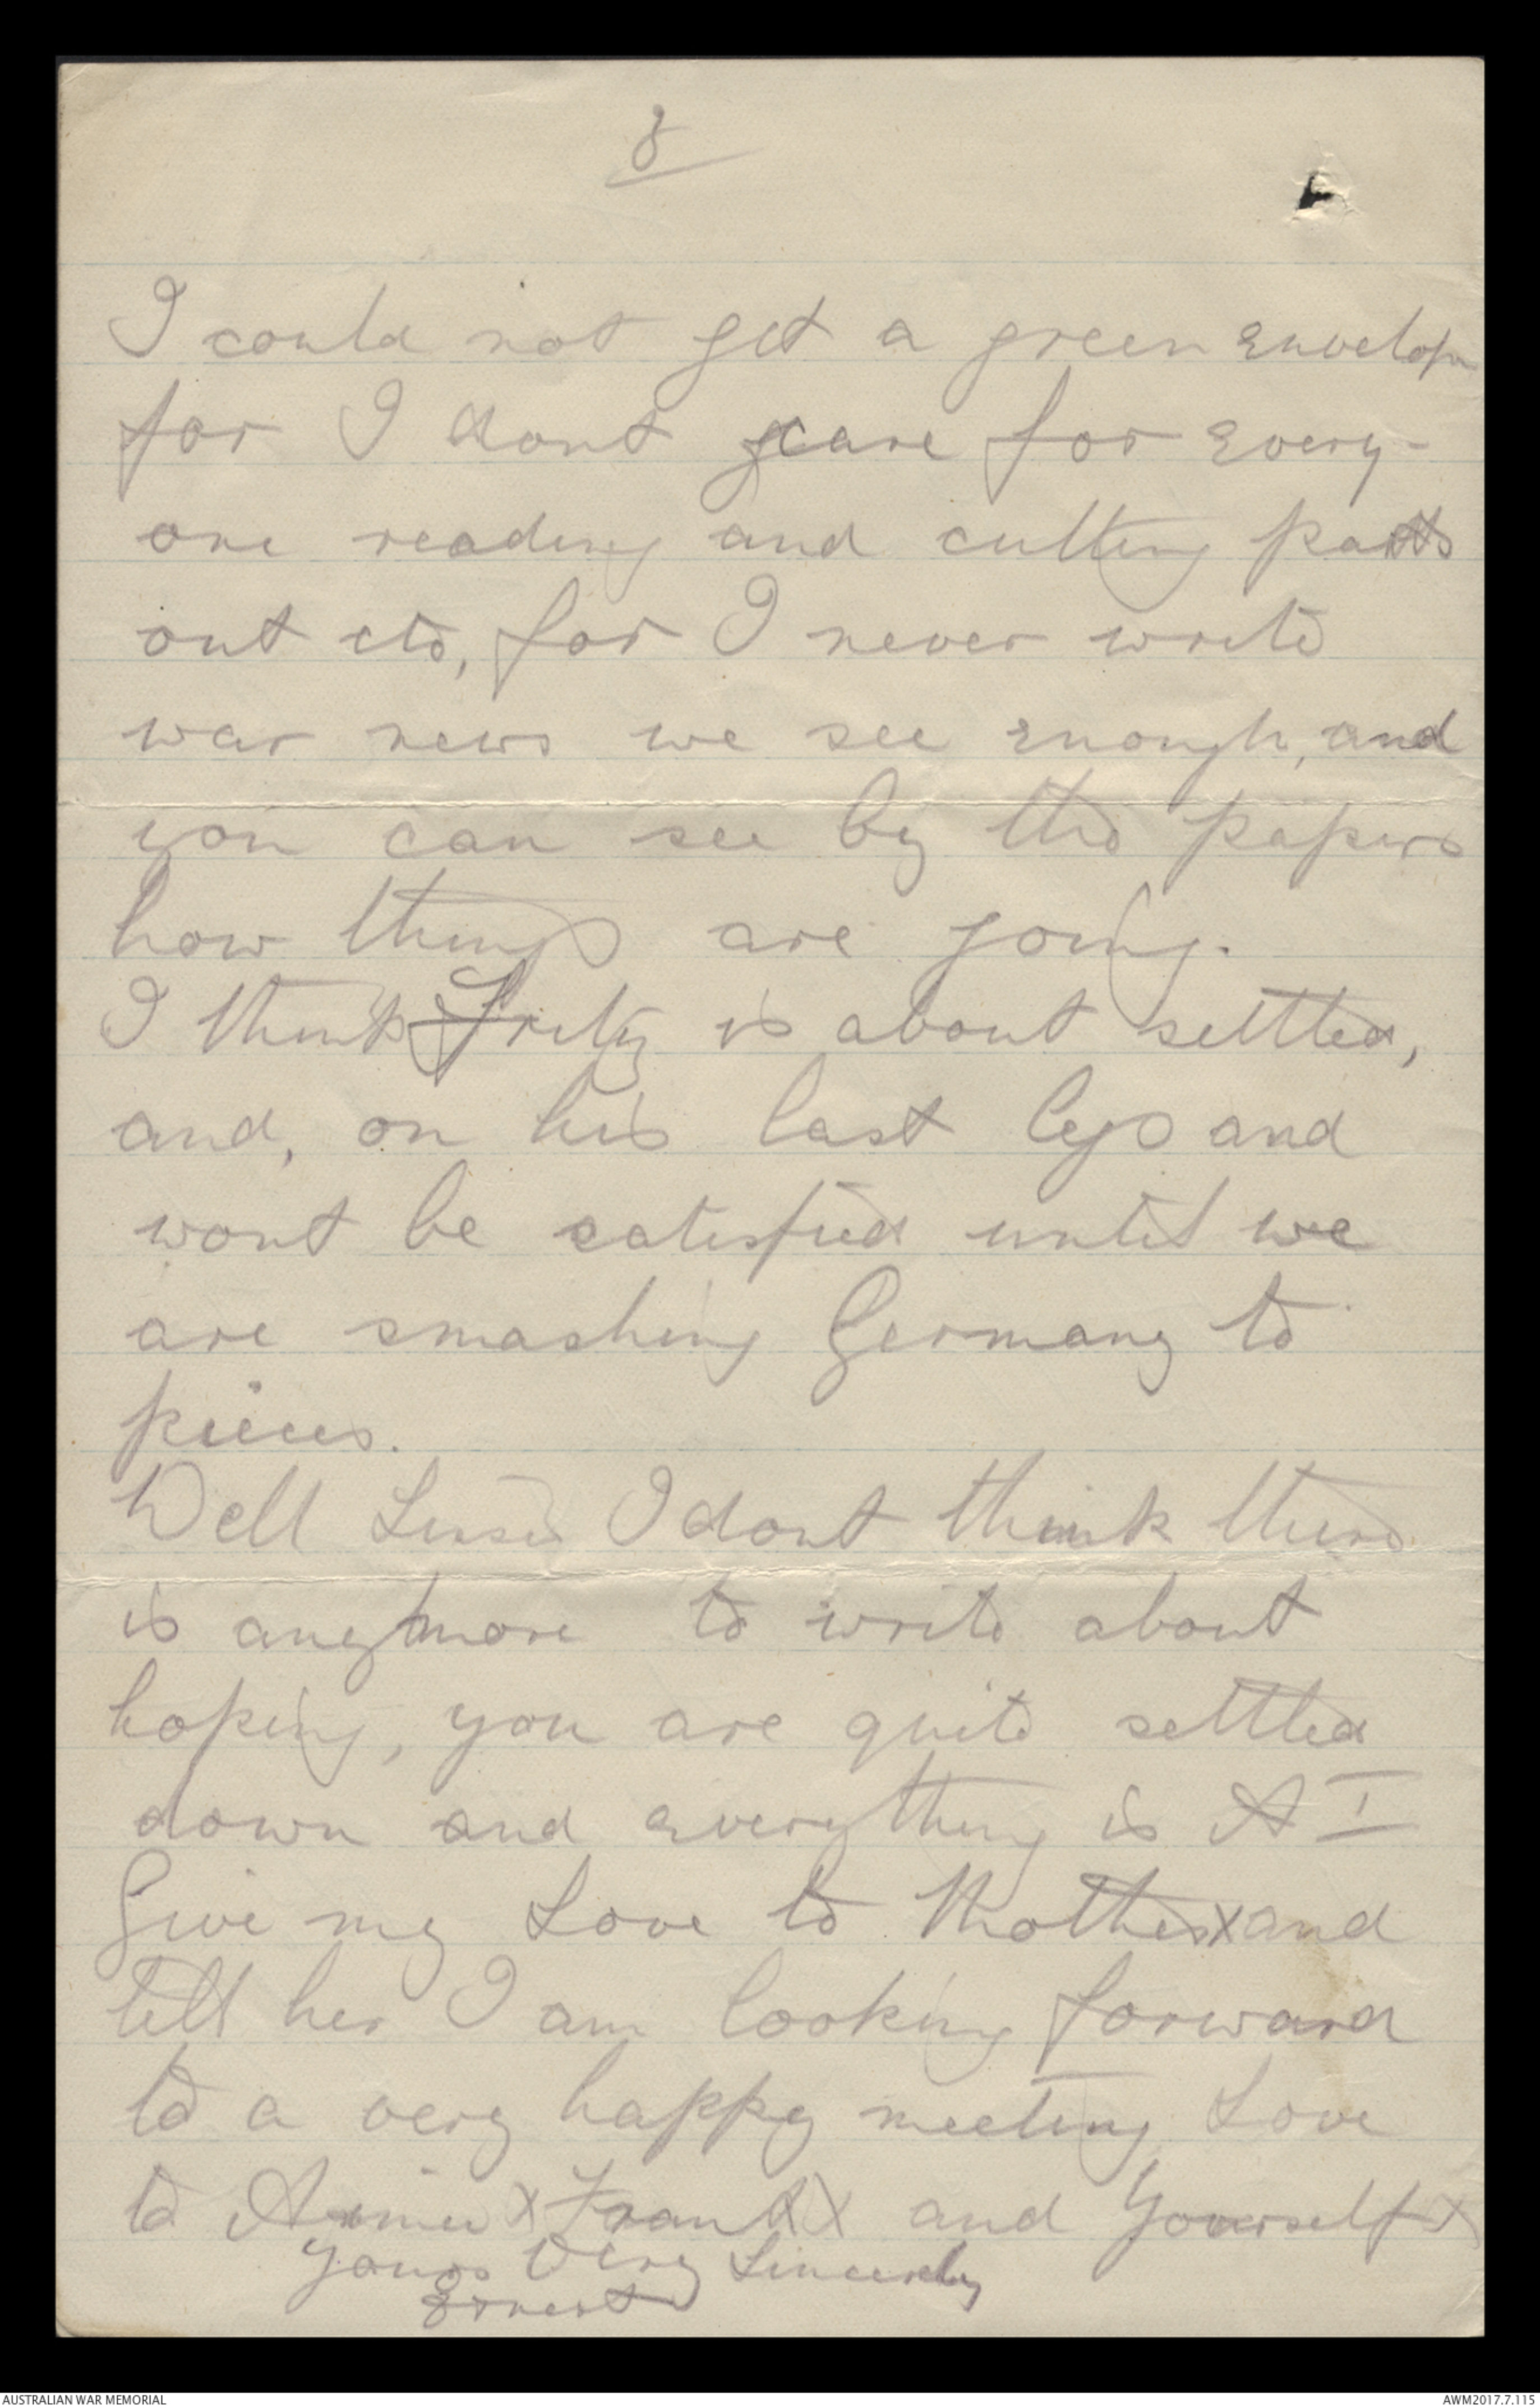 8
I could not get a green envelope
for I dont care for every-
one reading and cutting parts
out etc, for I never write
war news we see enough, and
you can see by the papers
how things are going.
I think Fritz is about settled,
and, on his last legs and
wont be satisfied until we
are smashing Germany to
pieces.
Well I dont think there
is anymore to write about
hoping, you are quite settled
down and everything is A1
Give my Love to Mother x and
tell her I am looking forward
to a very happy meeting Love
to x Frank X and Yourself X
Yours Very Sincerely
Ernest
AUSTRALIAN WAR MEMORIAL
AWM2017.7.115